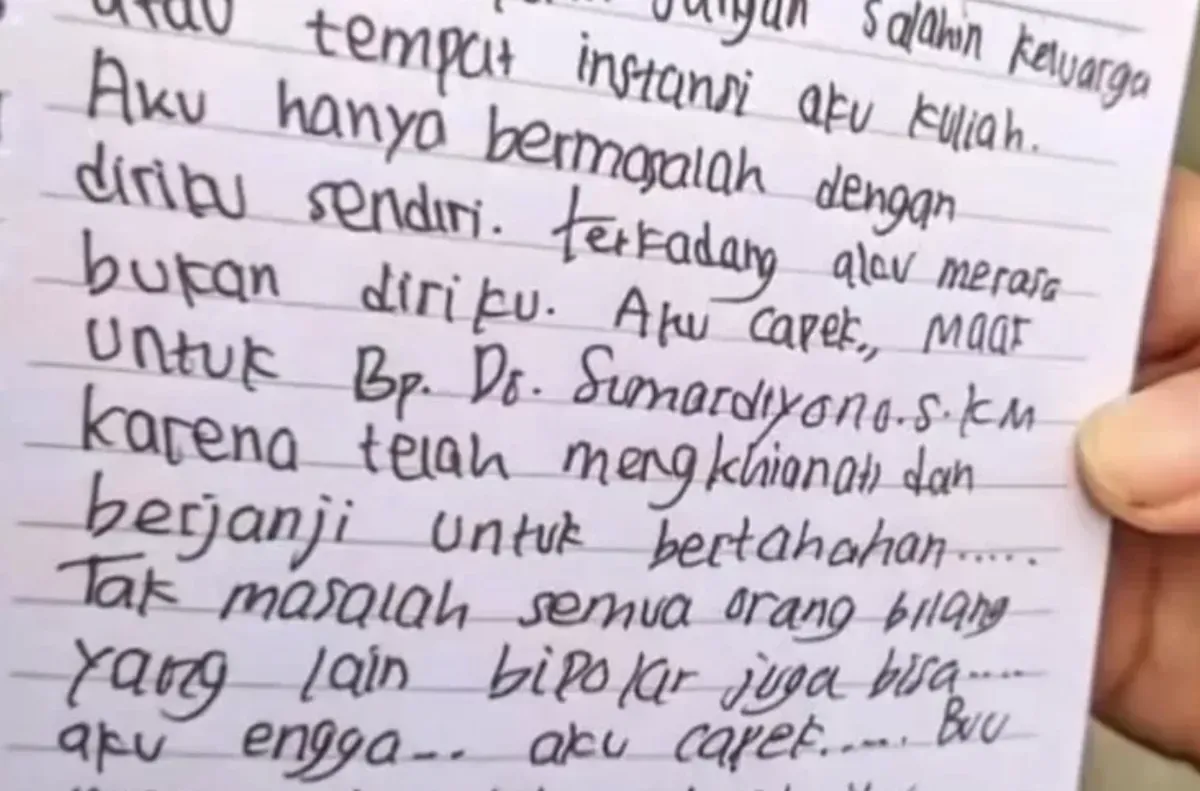 atau jangan salahin keluarga
tempat instansi aku kuliah.
Aku hanya bermasalah dengan
diriku sendiri. terkadang aku merasa
bukan diriku. Aku capek,, maaf
untuk Bp. Dr. Sumardiyono.S.KM
karena telah mengkhianati dan
berjanji untuk bertahahan.....
Tak masalah semua orang bilang
yang lain bipolar juga bisa....
aku engga... aku capek..... Buu